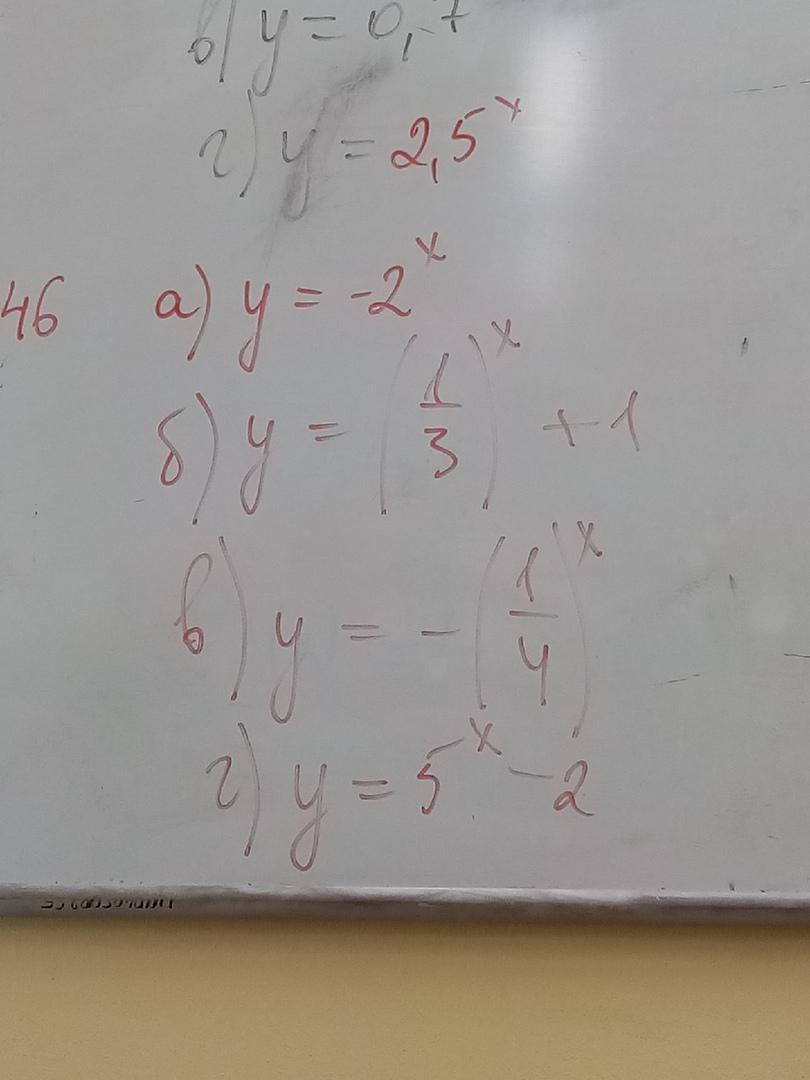 в) y = 0,7
г) y = 2,5^x
46 а) y = -2^x
б) y = (1/3)^x + 1
в) y = -(1/4)^x
г) y = 5^x - 2